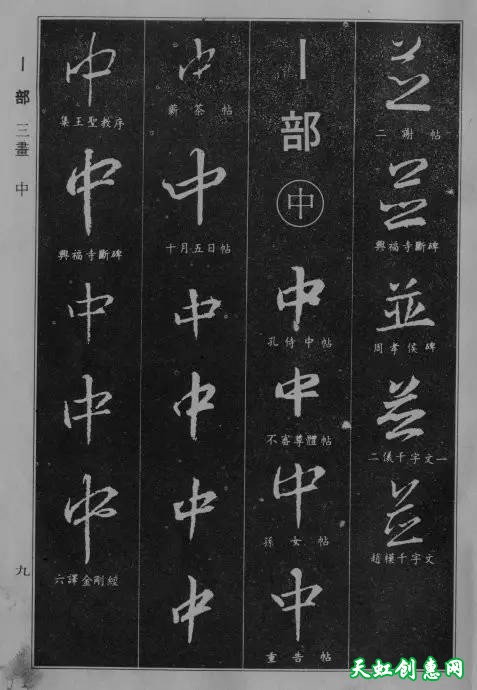 並
二謝帖
並
興福寺斷碑
並
周孝侯碑
並
二儀千字文一
並
趙模千字文
丨部
中
中
孔侍中帖
中
不審尊體帖
中
孫女帖
中
重告帖
中
蘄茶帖
中
十月五日帖
中
中
中
中
中
集王聖教序
中
興福寺斷碑
中
中
中
六譯金剛經
丨部 三畫 中
九
天虹创意网